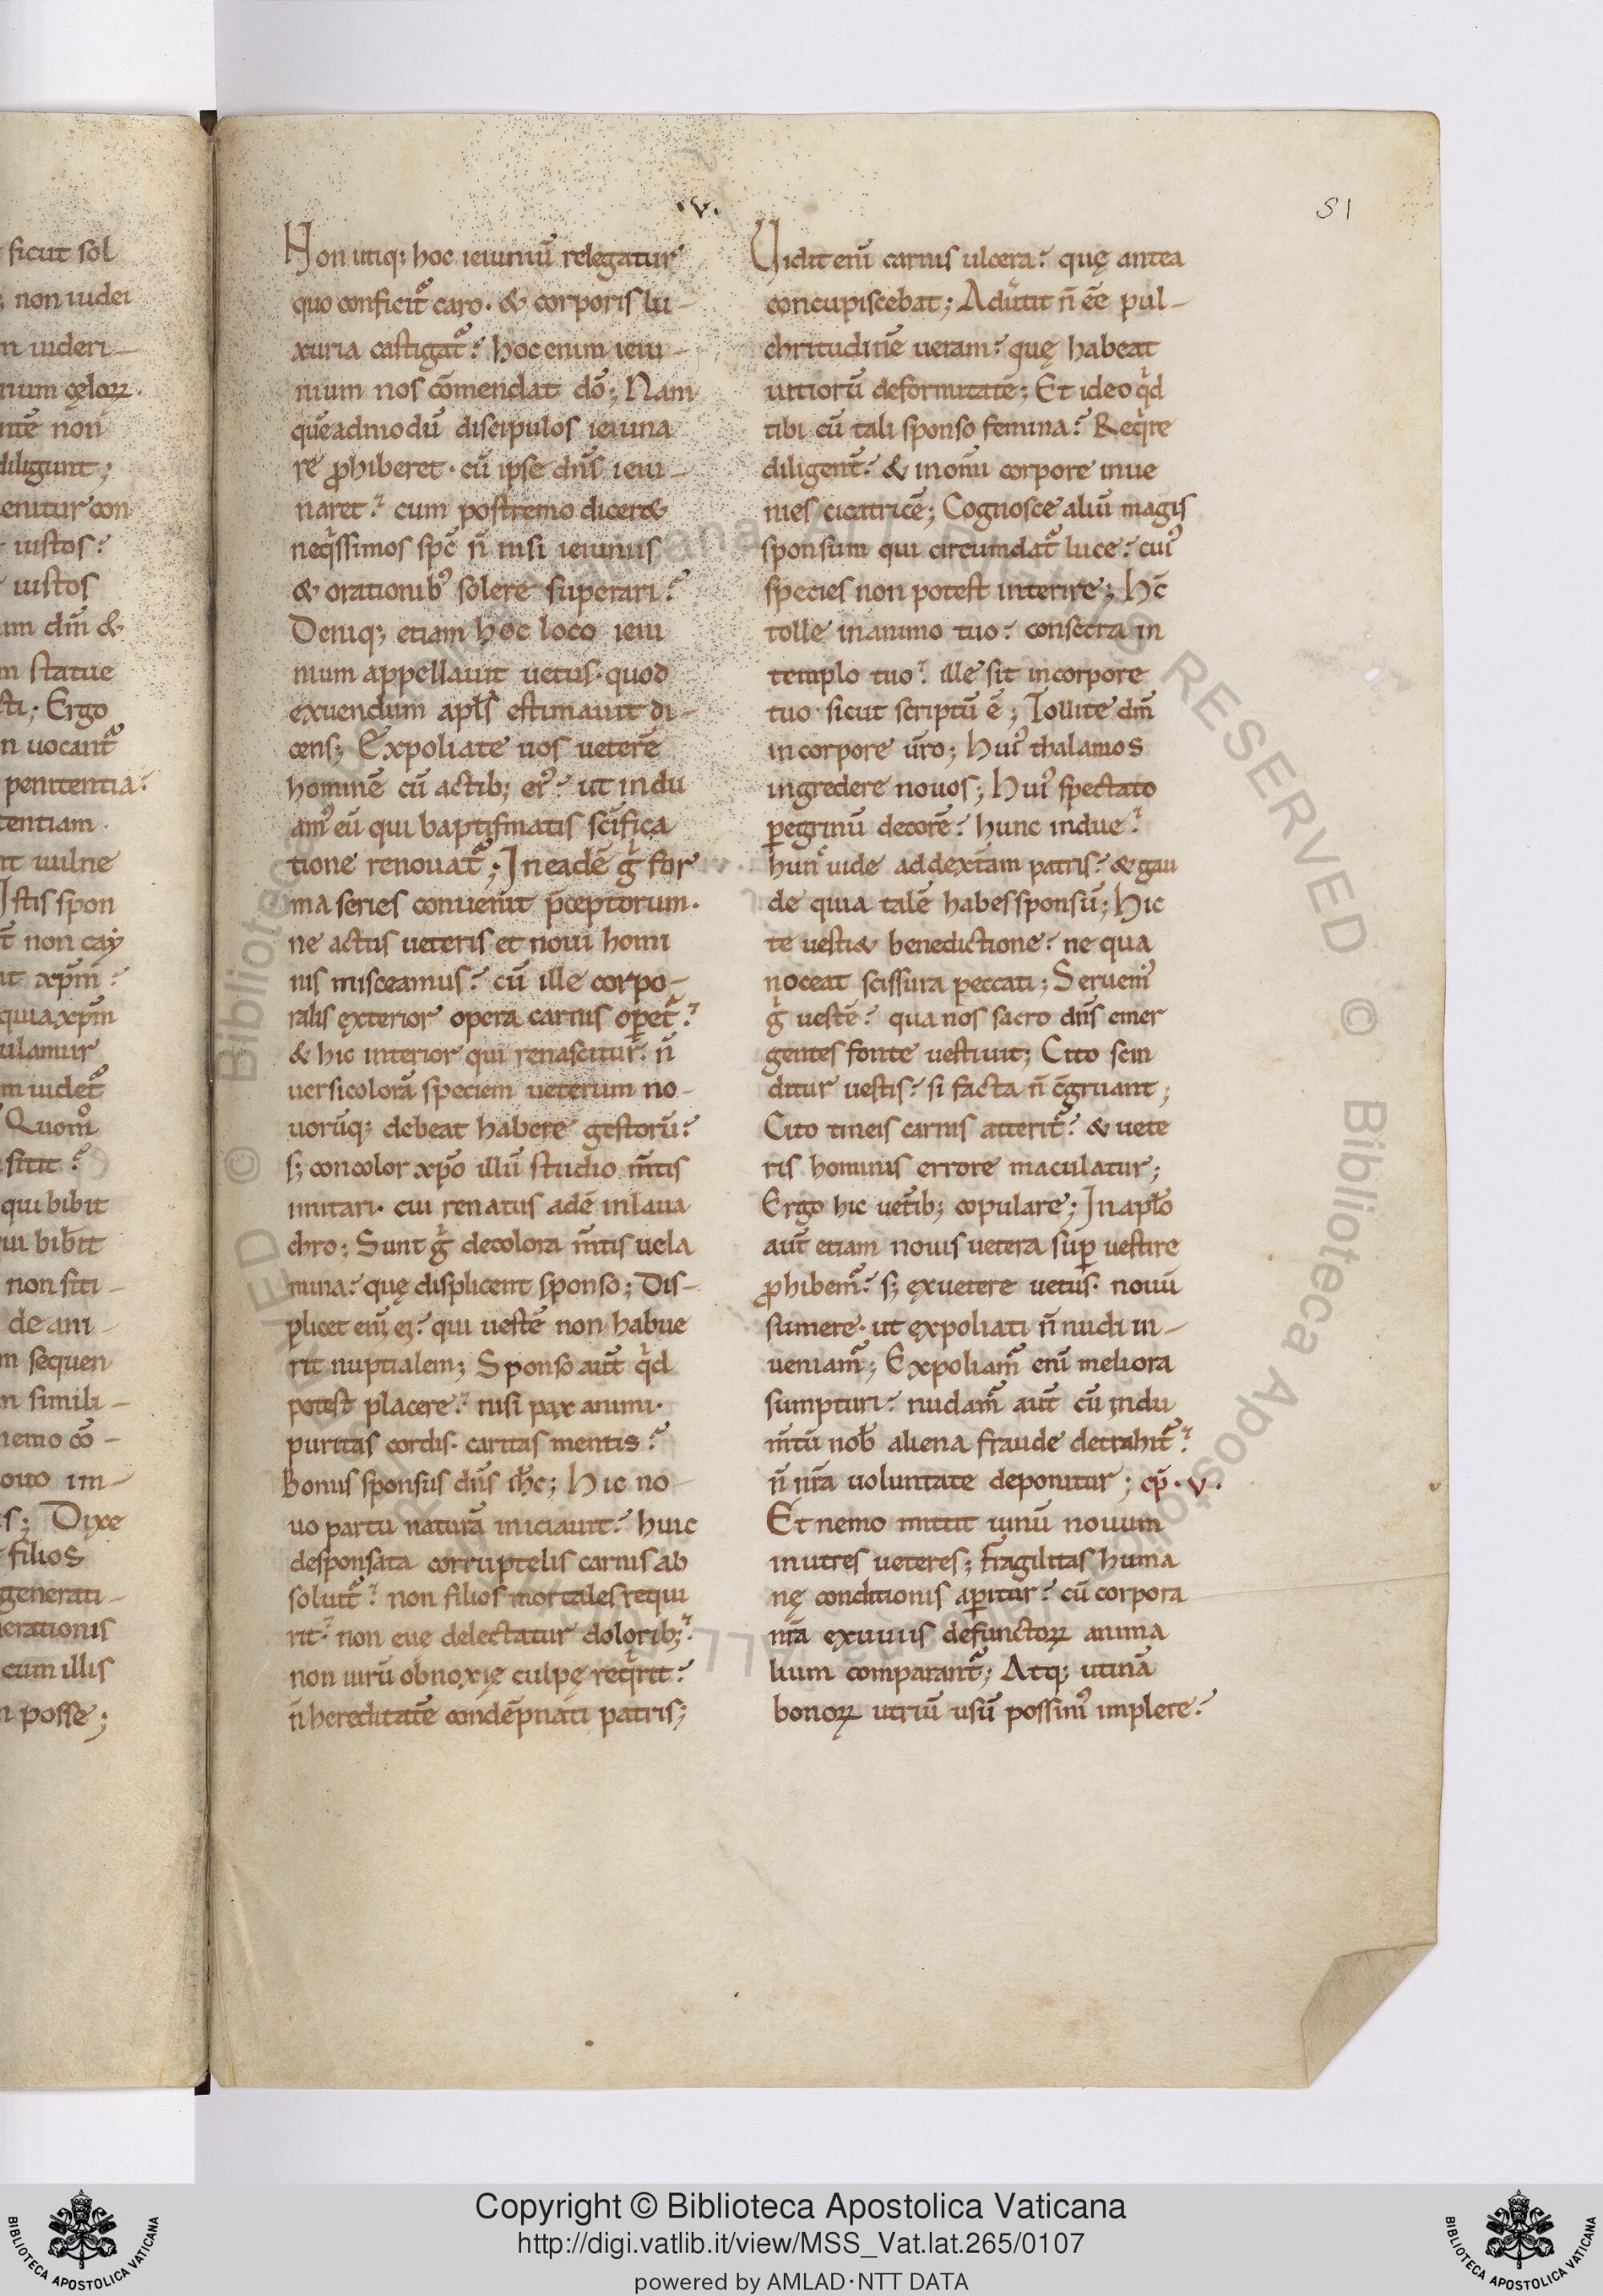 sicut sol
; non iudei
n uideri-
num cęloꝝ.
ntē non
diligunt;
enitur con
iustos?
iustos
um dñi &
m statue
sti; Ergo
n uocant᷑
penitentia?
tentiam.
nt uulne
Istis spon
non cay
ut xp̄m?
quia xp̄m
ulamur
m uidet᷑
Quom̊
sitit?
qui bibit
ui bib̄it
non siti-
de ani-
m sequen
n simili-
nemo cō-
ouo im-
s; Dixe
filios
generati-
nerationis
cum illis
n posse;
.v.
81
Non utiq; hoc ieiuniū relegatur
quo conficit᷑ caro. & corporis lu-
xuria castigat᷑? hoc enim ieiu-
nium nos cōmendat dō; Nam
quēadmodū discipulos ieiuna
re ꝓhiberet. cū ipse dn̄s ieiu-
naret? cum postremo dicer&
neqͥssimos sp̄c n̄ nisi ieiuniis
& orationib᷒ solere superari?
Deniq; etiam hoc loco ieiu
nium appellauit uetus. quod
exuendum apl̄s estimauit di-
cens; Expoliate uos ueterē
hominē cū actib; ei᷒? ut indu
am᷒ eū qui baptismatis sc̄ifica
tione renouat᷑; In eadē gͥ for
ma series conuenit p̄ceptorum.
ne actus ueteris et noui homi
nis misceamus? cū ille corpo-
ralis ęxterior opera carnis oꝑet᷑?
& hic interior qui renascitur. n̄
uersicolorā speciem ueterum no-
uorūq; debeat habere gestorū?
s; concolor xp̄o illū studio m̄tis
imitari. cui renatus adē in laua
chro; Sunt gͥ decolora m̄tis uela
mina? quę displicent sponso; Dis-
plicet eni᷒ ei? qui uestē non habue
rit nuptialem; Sponso aut̄ qͥd
potest placere? nisi pax animi.
puritas cordis. caritas mentis?
Bonus sponsus dn̄s ih̄c; Hic no-
uo partu naturā iniciauit? huic
desponsata corruptelis carnis ab
soluit᷑? non filios mortales requi
rit? non euę delectatur dolorib;?
non uirū obnoxię culpę reqͥrit?
n̄ hereditatē condēpnati patris;
Uidit eni᷒ carnis ulcera? quę antea
concupiscebat; Adu̓tit n̄ ēe pul-
chritudinē ueram? quę habeat
uitiorū deformitatē; Et ideo qͥd
tibi cū tali sponso femina? Reqͥre
diligent̄? & in om̄i corpore inue
nies cicatricē; Cognosce aliū magis
sponsum qui circumdat᷑ luce? cui᷒
species non potest interire; Hc̄
tolle in animo tuo? consecra in
templo tuo? ille sit in corpore
tuo. sicut scriptū ē; Tollite dn̄m
in corpore uro; Hui᷒ thalamos
ingredere nouos; Hui᷒ spectato
ꝑegrinū decorē? hunc indue?
hunc uide ad dexteram patris? & gau
de quia talē habes sponsū; Hic
te uesti& benedictione? ne qua
noceat scissura peccati; Seruem᷒
gͥ uestē? qua nos sacro dn̄s emer
gentes fonte uestiuit; Cito scin
ditur uestis? si facta n̄ c̄gruant;
Cito tineis carnis atterit᷑? & uete
ris hominis errore maculatur;
Ergo hic uet̄ib; copulare; In apl̄o
aut̄ etiam nouis uetera suꝑ uestire
ꝓhibem᷑? s; ęxuetere uetus. nouū
sumere. ut ęxpoliati n̄ nudi in-
ueniam᷑; Expoliam᷑ eni᷒ meliora
sumpturi? nudam᷑ aut̄ cū indu
m̄tū nob̄ aliena fraude detrahit᷑?
n̄ nr̄a uoluntate deponitur; cp̄.v.
Et nemo mittit uinū nouum
in utres ueteres; fragilitas huma
nę conditionis aꝑitur? cū corpora
nr̄a exuuiis defunctoꝝ anima
lium comparant᷑; Atq; utinā
bonoꝝ utriū usū possim᷒ implere?
v
Copyright © Biblioteca Apostolica Vaticana
http://digi.vatlib.it/view/MSS_Vat.lat.265/0107
powered by AMLAD·NTT DATA
BIBLIOTECA APOSTOLICA VATICANA
BIBLIOTECA APOSTOLICA VATICANA